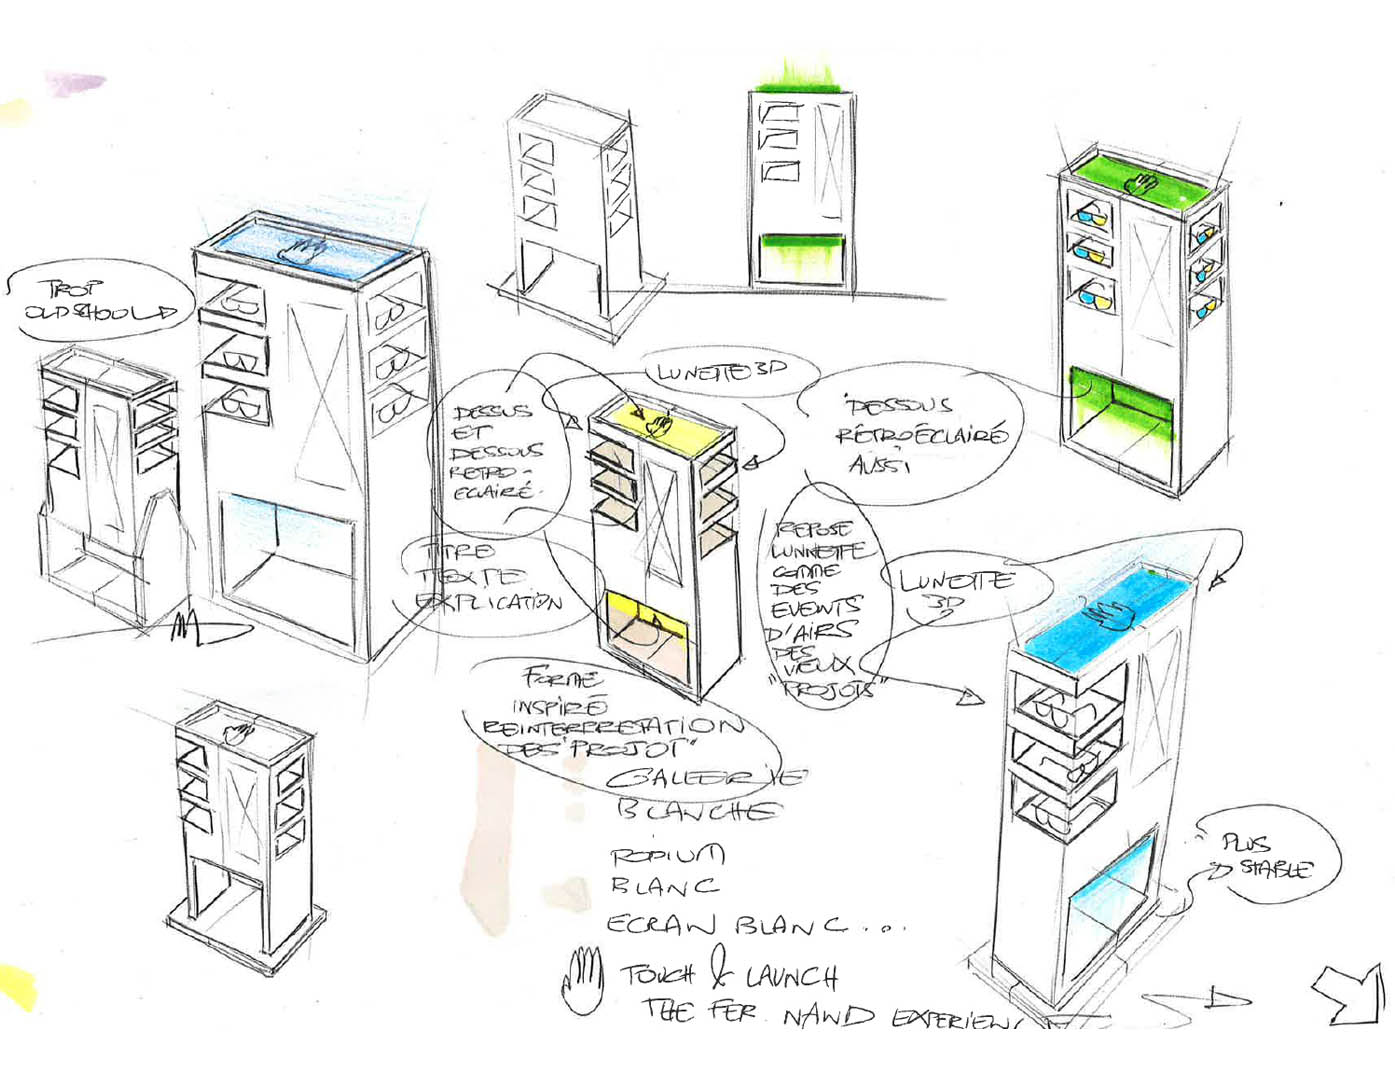 TROP
OLD SCHOOLD
DESSUS
ET
DESSOUS
RETRO-
ECLAIRÉ.
LUNETTE 3D
DESSOUS
RÉTROÉCLAIRÉ
AUSSI
TITRE
TEXTE
EXPLICATION
REPOSE
LUNNETTE
COMME
DES
EVENTS
D'AIRS
DES
VIEUX
"PROJOTS"
LUNETTE
3D
FORME
INSPIRÉ
REINTERPRETATION
DES "PROJOT"
GALLERIE
BLANCHE
PODIUM
BLANC
ECRAN BLANC...
TOUCH & LAUNCH
THE FER.NAND EXPERIENC
PLUS
STABLE